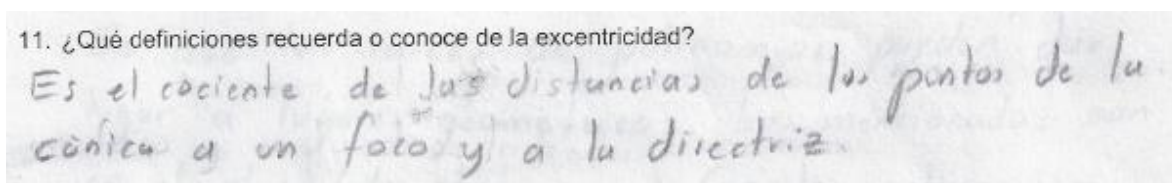 11. ¿Qué definiciones recuerda o conoce de la excentricidad?
Es el cociente de las distancias de los puntos de la
cónica a un foco y a la directriz